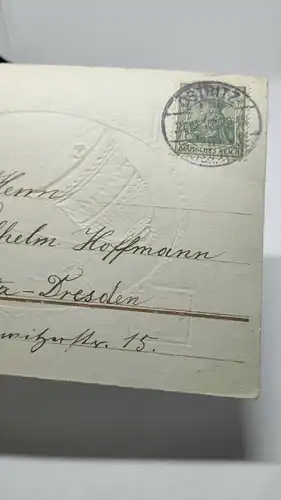 OSTRITZ
DEUTSCHES REICH
Herrn
helm Hoffmann
a - Dresden
witzerstr. 15.